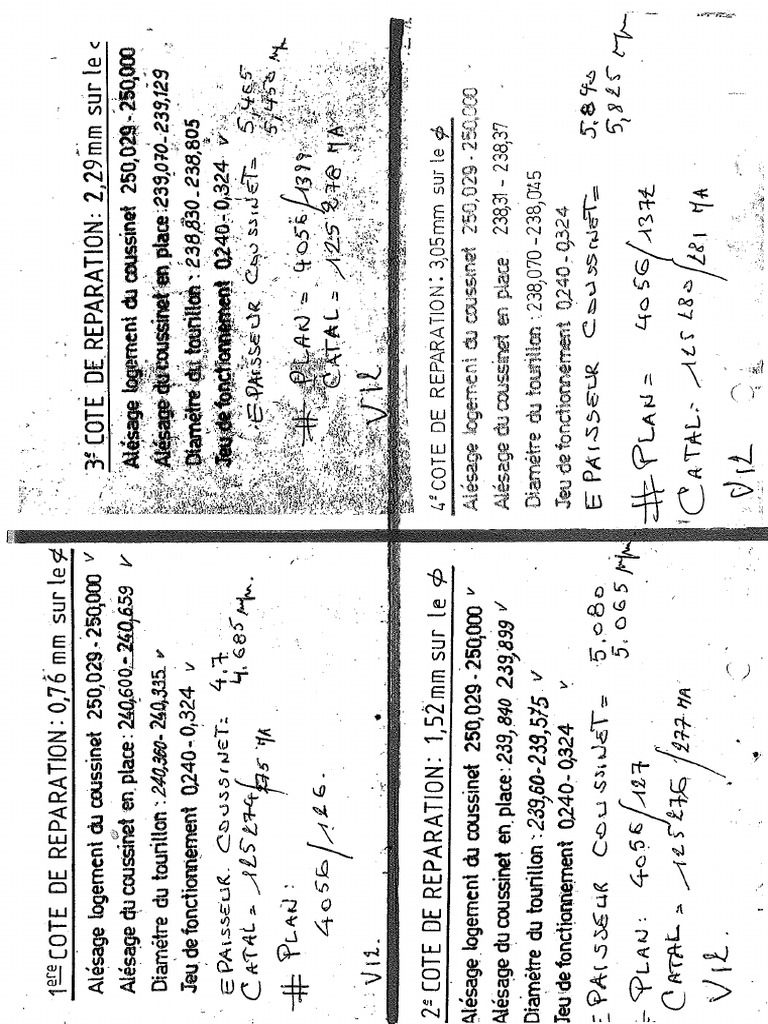 1ère COTE DE REPARATION: 0,76 mm sur le ϕ
Alésage logement du coussinet 250,029 - 250,000 ✓
Alésage du coussinet en place : 240,600 - 240,659 ✓
Diamétre du tourillon : 240,360 - 240,335 ✓
Jeu de fonctionnement 0,240 - 0,324 ✓
EPAISSEUR COUSSINET = 4.7
4.685 m/m.
CATAL = 125274/275 MA
# PLAN:
4056/126.
V12.
2ᵉ COTE DE REPARATION: 1,52 mm sur le ϕ
Alésage logement du coussinet 250,029 - 250,000 ✓
Alésage du coussinet en place : 239,840 239,899 ✓
Diamétre du tourillon : 239,60 - 239,575 ✓
Jeu de fonctionnement 0,240 - 0,324 ✓
EPAISSEUR COUSSINET = 5.080
5.065 m/m
# PLAN: 4056/127
CATAL = 125276/277 MA
V12.
3ᵉ COTE DE REPARATION: 2,29 mm sur le
Alésage logement du coussinet 250,029 - 250,000
Alésage du coussinet en place : 239,070 - 239,129
Diamétre du tourillon : 238,830 - 238,805
Jeu de fonctionnement 0,240 - 0,324 ✓
EPAISSEUR COUSSINET = 5,465
5,450 m/m
# PLAN = 4056/1399
CATAL = 125 278 MA
V12
4ᵉ COTE DE REPARATION: 3,05 mm sur le ϕ
Alésage logement du coussinet 250,029 - 250,000
Alésage du coussinet en place 238,31 - 238,37
Diamétre du tourillon : 238,070 - 238,045
Jeu de fonctionnement 0,240 - 0,324
EPAISSEUR COUSSINET = 5.840
5,825 m/m
# PLAN = 4056/1372
CATAL = 125280/281 MA
V12